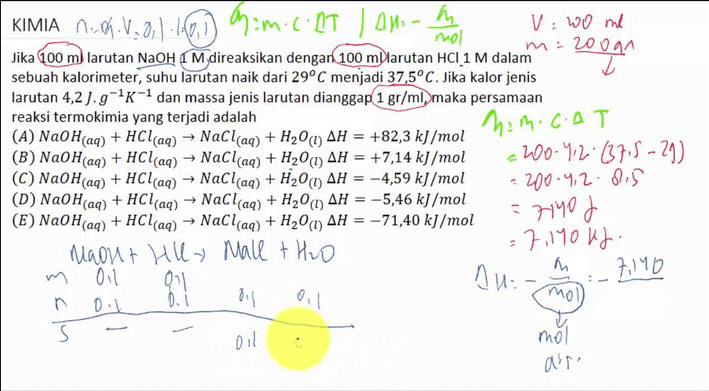 KIMIA n=M.V=0,1.1=0,1
q=m.c.ΔT | ΔH=-q/mol
V = 200 ml
m = 200gr
Jika 100 ml larutan NaOH 1 M direaksikan dengan 100 ml larutan HCl 1 M dalam
sebuah kalorimeter, suhu larutan naik dari 29°C menjadi 37,5°C. Jika kalor jenis
larutan 4,2 J.g⁻¹K⁻¹ dan massa jenis larutan dianggap 1 gr/ml, maka persamaan
reaksi termokimia yang terjadi adalah
(A) NaOH(aq) + HCl(aq) → NaCl(aq) + H₂O(l) ΔH = +82,3 kJ/mol
(B) NaOH(aq) + HCl(aq) → NaCl(aq) + H₂O(l) ΔH = +7,14 kJ/mol
(C) NaOH(aq) + HCl(aq) → NaCl(aq) + H₂O(l) ΔH = −4,59 kJ/mol
(D) NaOH(aq) + HCl(aq) → NaCl(aq) + H₂O(l) ΔH = −5,46 kJ/mol
(E) NaOH(aq) + HCl(aq) → NaCl(aq) + H₂O(l) ΔH = −71,40 kJ/mol
q=m.c.ΔT
=200.4,2.(37,5-29)
=200.4,2.8,5
=7140 J
=7,140 kJ.
NaOH + HCl → NaCl + H₂O
m 0,1 0,1
n 0,1 0,1 0,1 0,1
S — — 0,1
ΔH=-q/mol=-7,140
mol